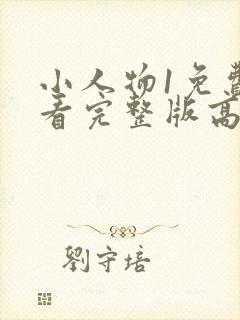 小人物1免费
看完整版高
劉守培